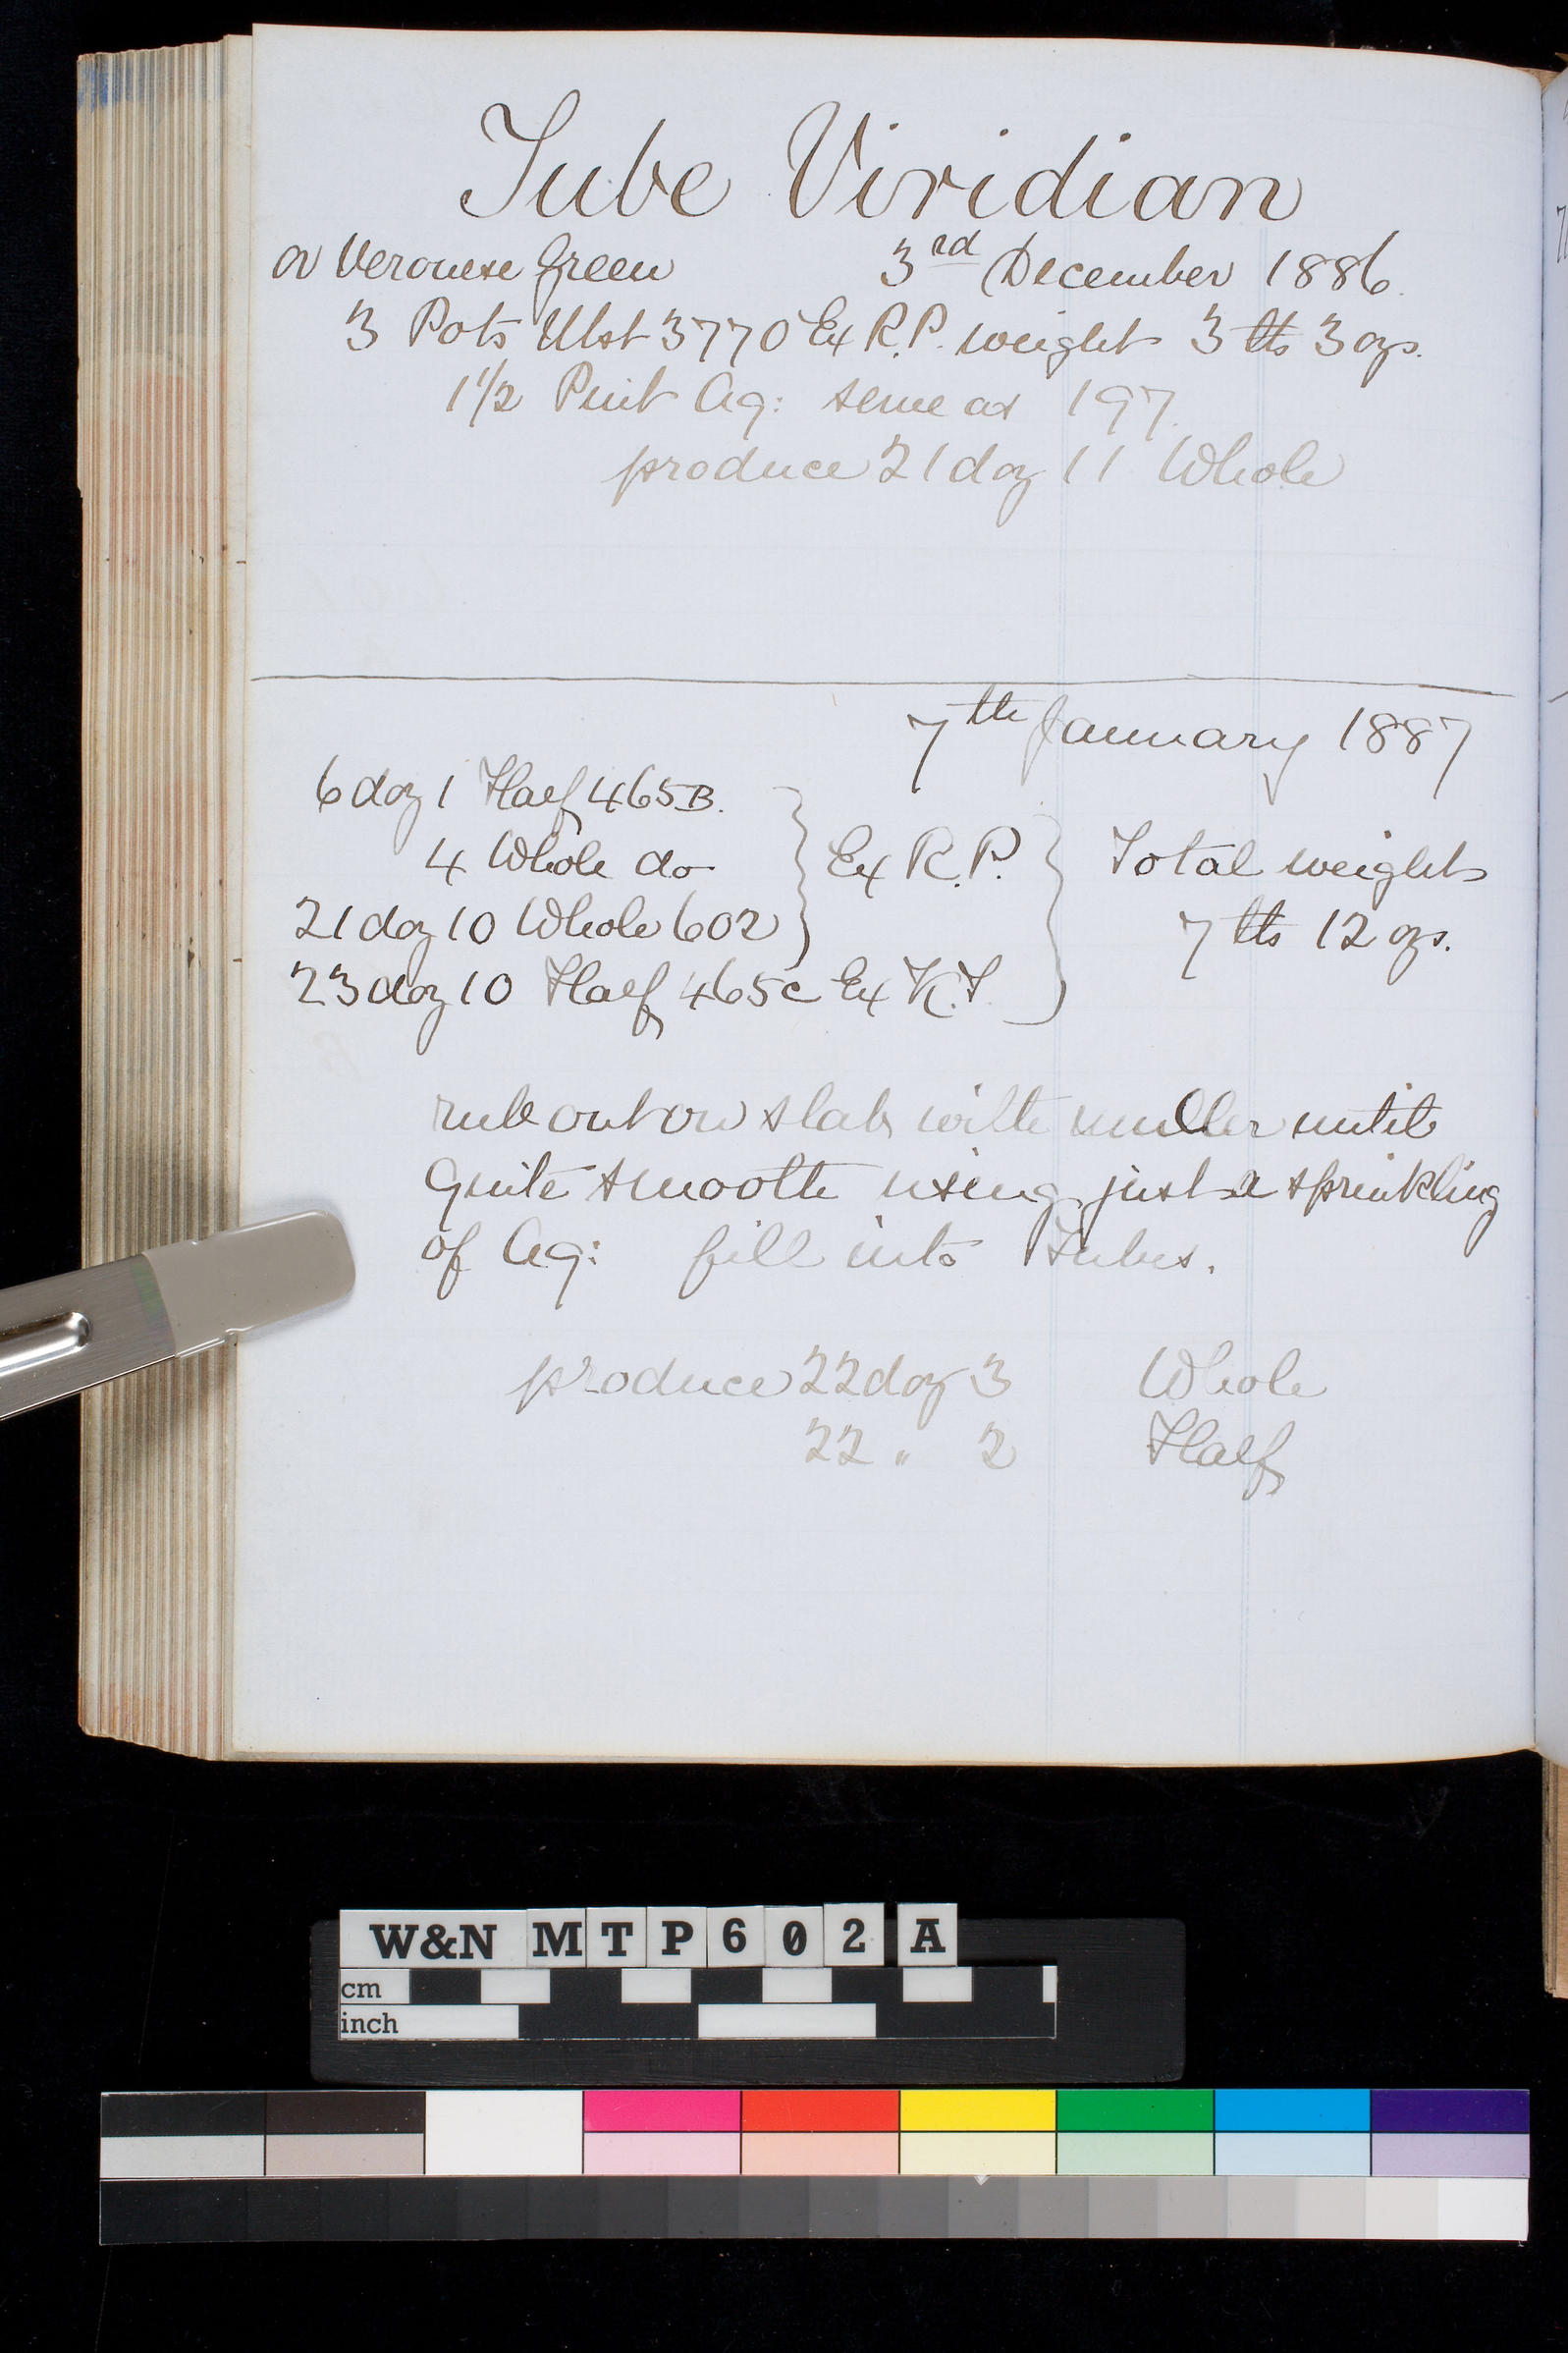 Tube Viridian
or Veronese Green 3rd December 1886.
3 Pots Ulst 3770 Ex R.P. weight 3 lbs 3 ozs.
1 1/2 Pint Aq: same as 197.
produce 21 doz 11 Whole
7th January 1887
6 doz 1 Half 465B.
4 Whole do
21 doz 10 Whole 602
Ex R.P.
23 doz 10 Half 465c Ex K.T.
Total weight
7 lbs 12 ozs.
rub out on slab with muller until
quite smooth using just a sprinkling
of Aq: fill into Tubes.
produce 22 doz 3 Whole
22 " 2 Half
W&N MTP602 A
cm
inch